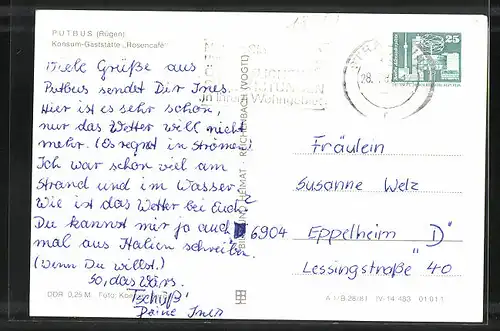 PUTBUS (Rügen)
Konsum-Gaststätte „Rosencafé"
Viele Grüße aus
Putbus sendet Dir Ines.
Hier ist es sehr schön,
nur das Wetter will nicht
mehr. (Es regnet in Strömen)
Ich war schon viel am
Strand und im Wasser.
Wie ist das Wetter bei Euch?
Du kannst mir ja auch
mal aus Italien schreiben.
(Wenn Du willst.)
So, das wärs.
Tschüß
Deine Ines
DDR 0,25 M Foto:
BILD UND HEIMAT REICHENBACH (VOGTL)
25
28.
in Ihrem Wohngebiet
Fräulein
Susanne Welz
6904 Eppelheim "D"
Lessingstraße 40
IV-14-483 01 01 1